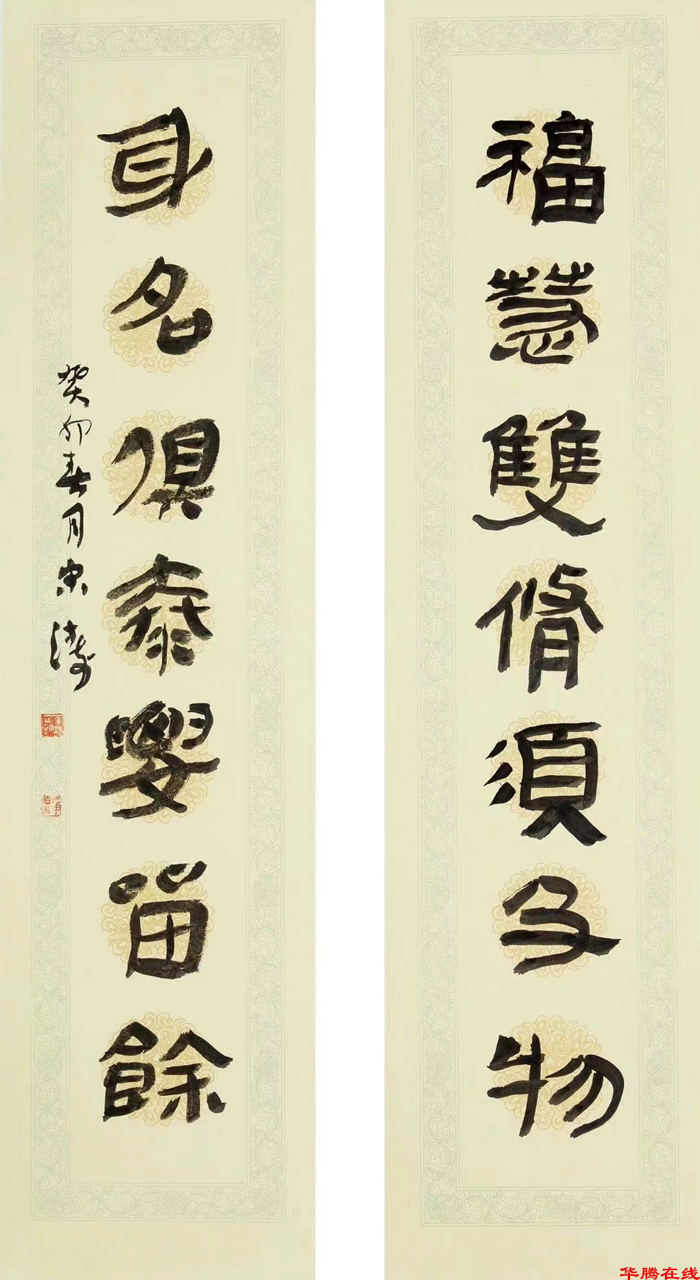 福慧雙脩須及物
身名俱泰要留餘
癸卯春月
华腾在线